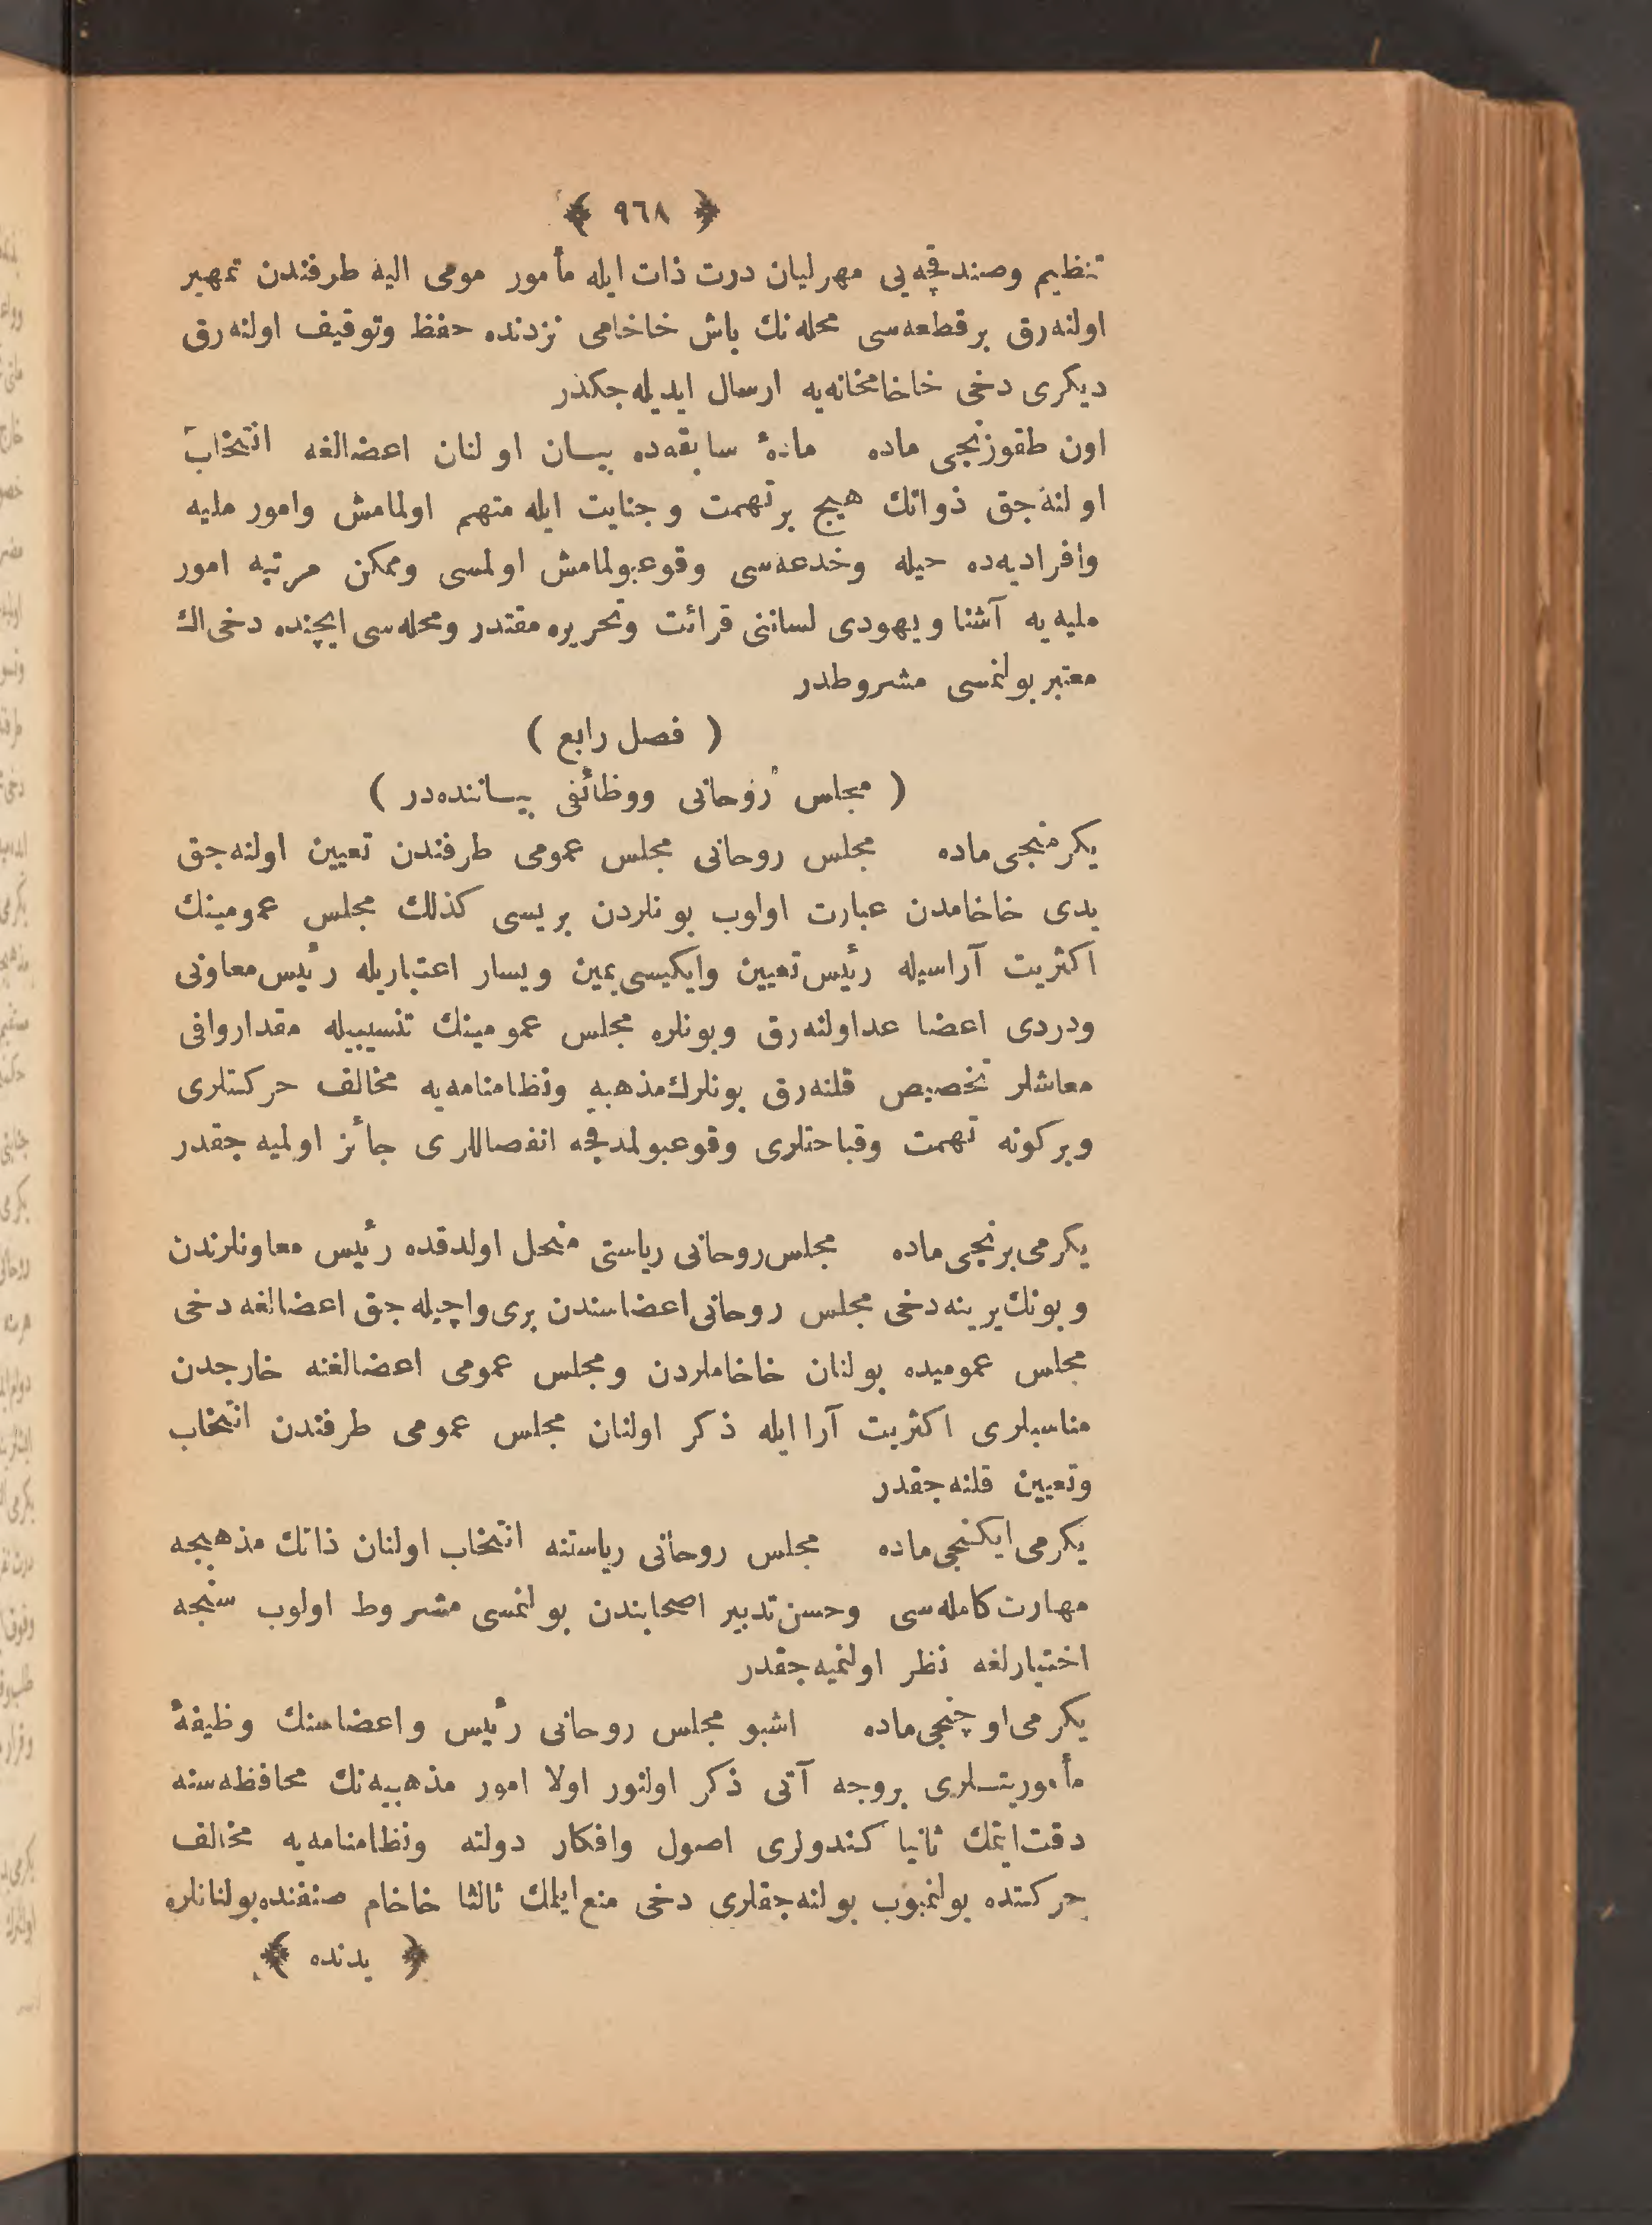 ﴿ ٩٦٨ ﴾
تنظیم وصندقچه‌یی مهرلیان درت ذات ایله مأمور مومی الیه طرفندن تمهیر
اولنه‌رق برقطعه‌سی محله‌نك باش خاخامی نزدنده حفظ وتوقیف اولنه‌رق
دیكری دخی خاخامخانه‌یه ارسال ایدیله‌جكدر
اون طقوزنجی ماده مادۀ سابقه‌ده بیان اولنان اعضالغه انتخاب
اولنه‌جق ذواتك هیچ برتهمت وجنایت ایله متهم اولمامش وامور ملیه
وافرادیه‌ده حیله وخدعه‌سی وقوعبولمامش اولمسی وممكن مرتبه امور
ملیه‌یه آشنا ویهودی لساننی قرائت وتحریره مقتدر ومحله‌سی ایچنده دخی اك
معتبر بولنمسی مشروطدر
( فصل رابع )
( مجلس روحانی ووظائفی بیاننده‌در )
یكرمنجی ماده مجلس روحانی مجلس عمومی طرفندن تعیین اولنه‌جق
یدی خاخامدن عبارت اولوب بونلردن بریسی كذلك مجلس عمومینك
اكثریت آراسیله رئیس تعیین وایكیسی یمین ویسار اعتباریله رئیس معاونی
ودردی اعضا عداولنه‌رق وبونلره مجلس عمومینك تنسیبیله مقداروافی
معاشلر تخصیص قلنه‌رق بونلرك مذهبه ونظامنامه‌یه مخالف حركتلری
وبركونه تهمت وقباحتلری وقوعبولمدقجه انفصاللری جائز اولمیه‌جقدر
یكرمی برنجی ماده مجلس روحانی ریاستی منحل اولدقده رئیس معاونلرندن
وبونك یرینه دخی مجلس روحانی اعضاسندن بری واچیله‌جق اعضالغه دخی
مجلس عمومیده بولنان خاخاملردن ومجلس عمومی اعضالغنه خارجدن
مناسبلری اكثریت آرا ایله ذكر اولنان مجلس عمومی طرفندن انتخاب
وتعیین قلنه‌جقدر
یكرمی ایكنجی ماده مجلس روحانی ریاستنه انتخاب اولنان ذاتك مذهبجه
مهارت كامله‌سی وحسن تدبیر اصحابندن بولنمسی مشروط اولوب سنجه
اختیارلغه نظر اولنمیه‌جقدر
یكرمی اوچنجی ماده اشبو مجلس روحانی رئیس واعضاسنك وظیفۀ
مأموریتلری بروجه آتی ذكر اولنور اولا امور مذهبیه‌نك محافظه‌سنه
دقت ایتمك ثانیا كندولری اصول وافكار دولته ونظامنامه‌یه مخالف
حركتده بولنمیوب بولنه‌جقلری دخی منع ایلمك ثالثا خاخام صنفنده بولنانلره
﴿ یدنده ﴾